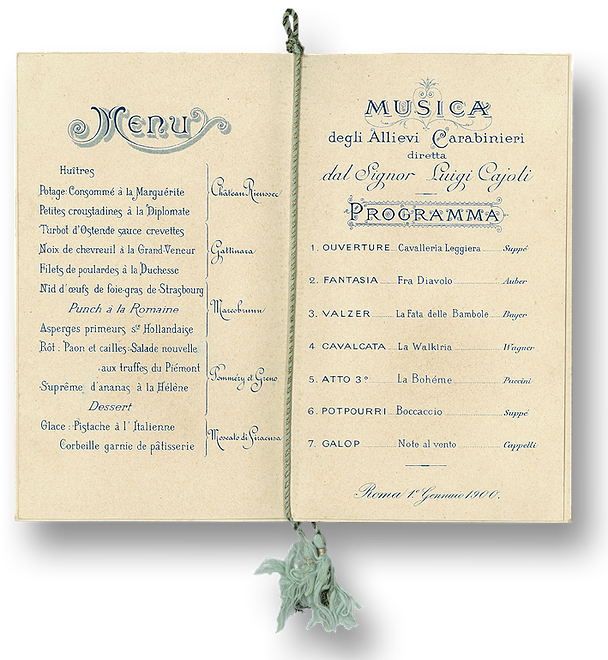 Menu
Huîtres
Potage: Consommé à la Marguérite
Petites croustadines à la Diplomate
Turbot d'Ostende sauce crevettes
Noix de chevreuil à la Grand-Veneur
Filets de poulardes à la Duchesse
Nid d'œufs de foie-gras de Strasbourg
Punch à la Romaine
Asperges primeurs sce Hollandaise
Rôt: Paon et cailles-Salade nouvelle
aux truffes du Piémont
Suprême d'ananas à la Hélène
Dessert
Glace: Pistache à l'Italienne
Corbeille garnie de pâtisserie
Château Rieussec
Gattinara
Marcobrunn
Pommery et Greno
Moscato di Siracusa
MUSICA
degli Allievi Carabinieri
diretta
dal Signor Luigi Cajoli
PROGRAMMA
1. OUVERTURE Cavalleria Leggiera Suppé
2. FANTASIA Fra Diavolo Auber
3. VALZER La Fata delle Bambole Bayer
4 CAVALCATA La Walkiria Wagner
5. ATTO 3º La Bohéme Puccini
6. POTPOURRI Boccaccio Suppé
7. GALOP Note al vento Cappelli
Roma 1º Gennaio 1900.